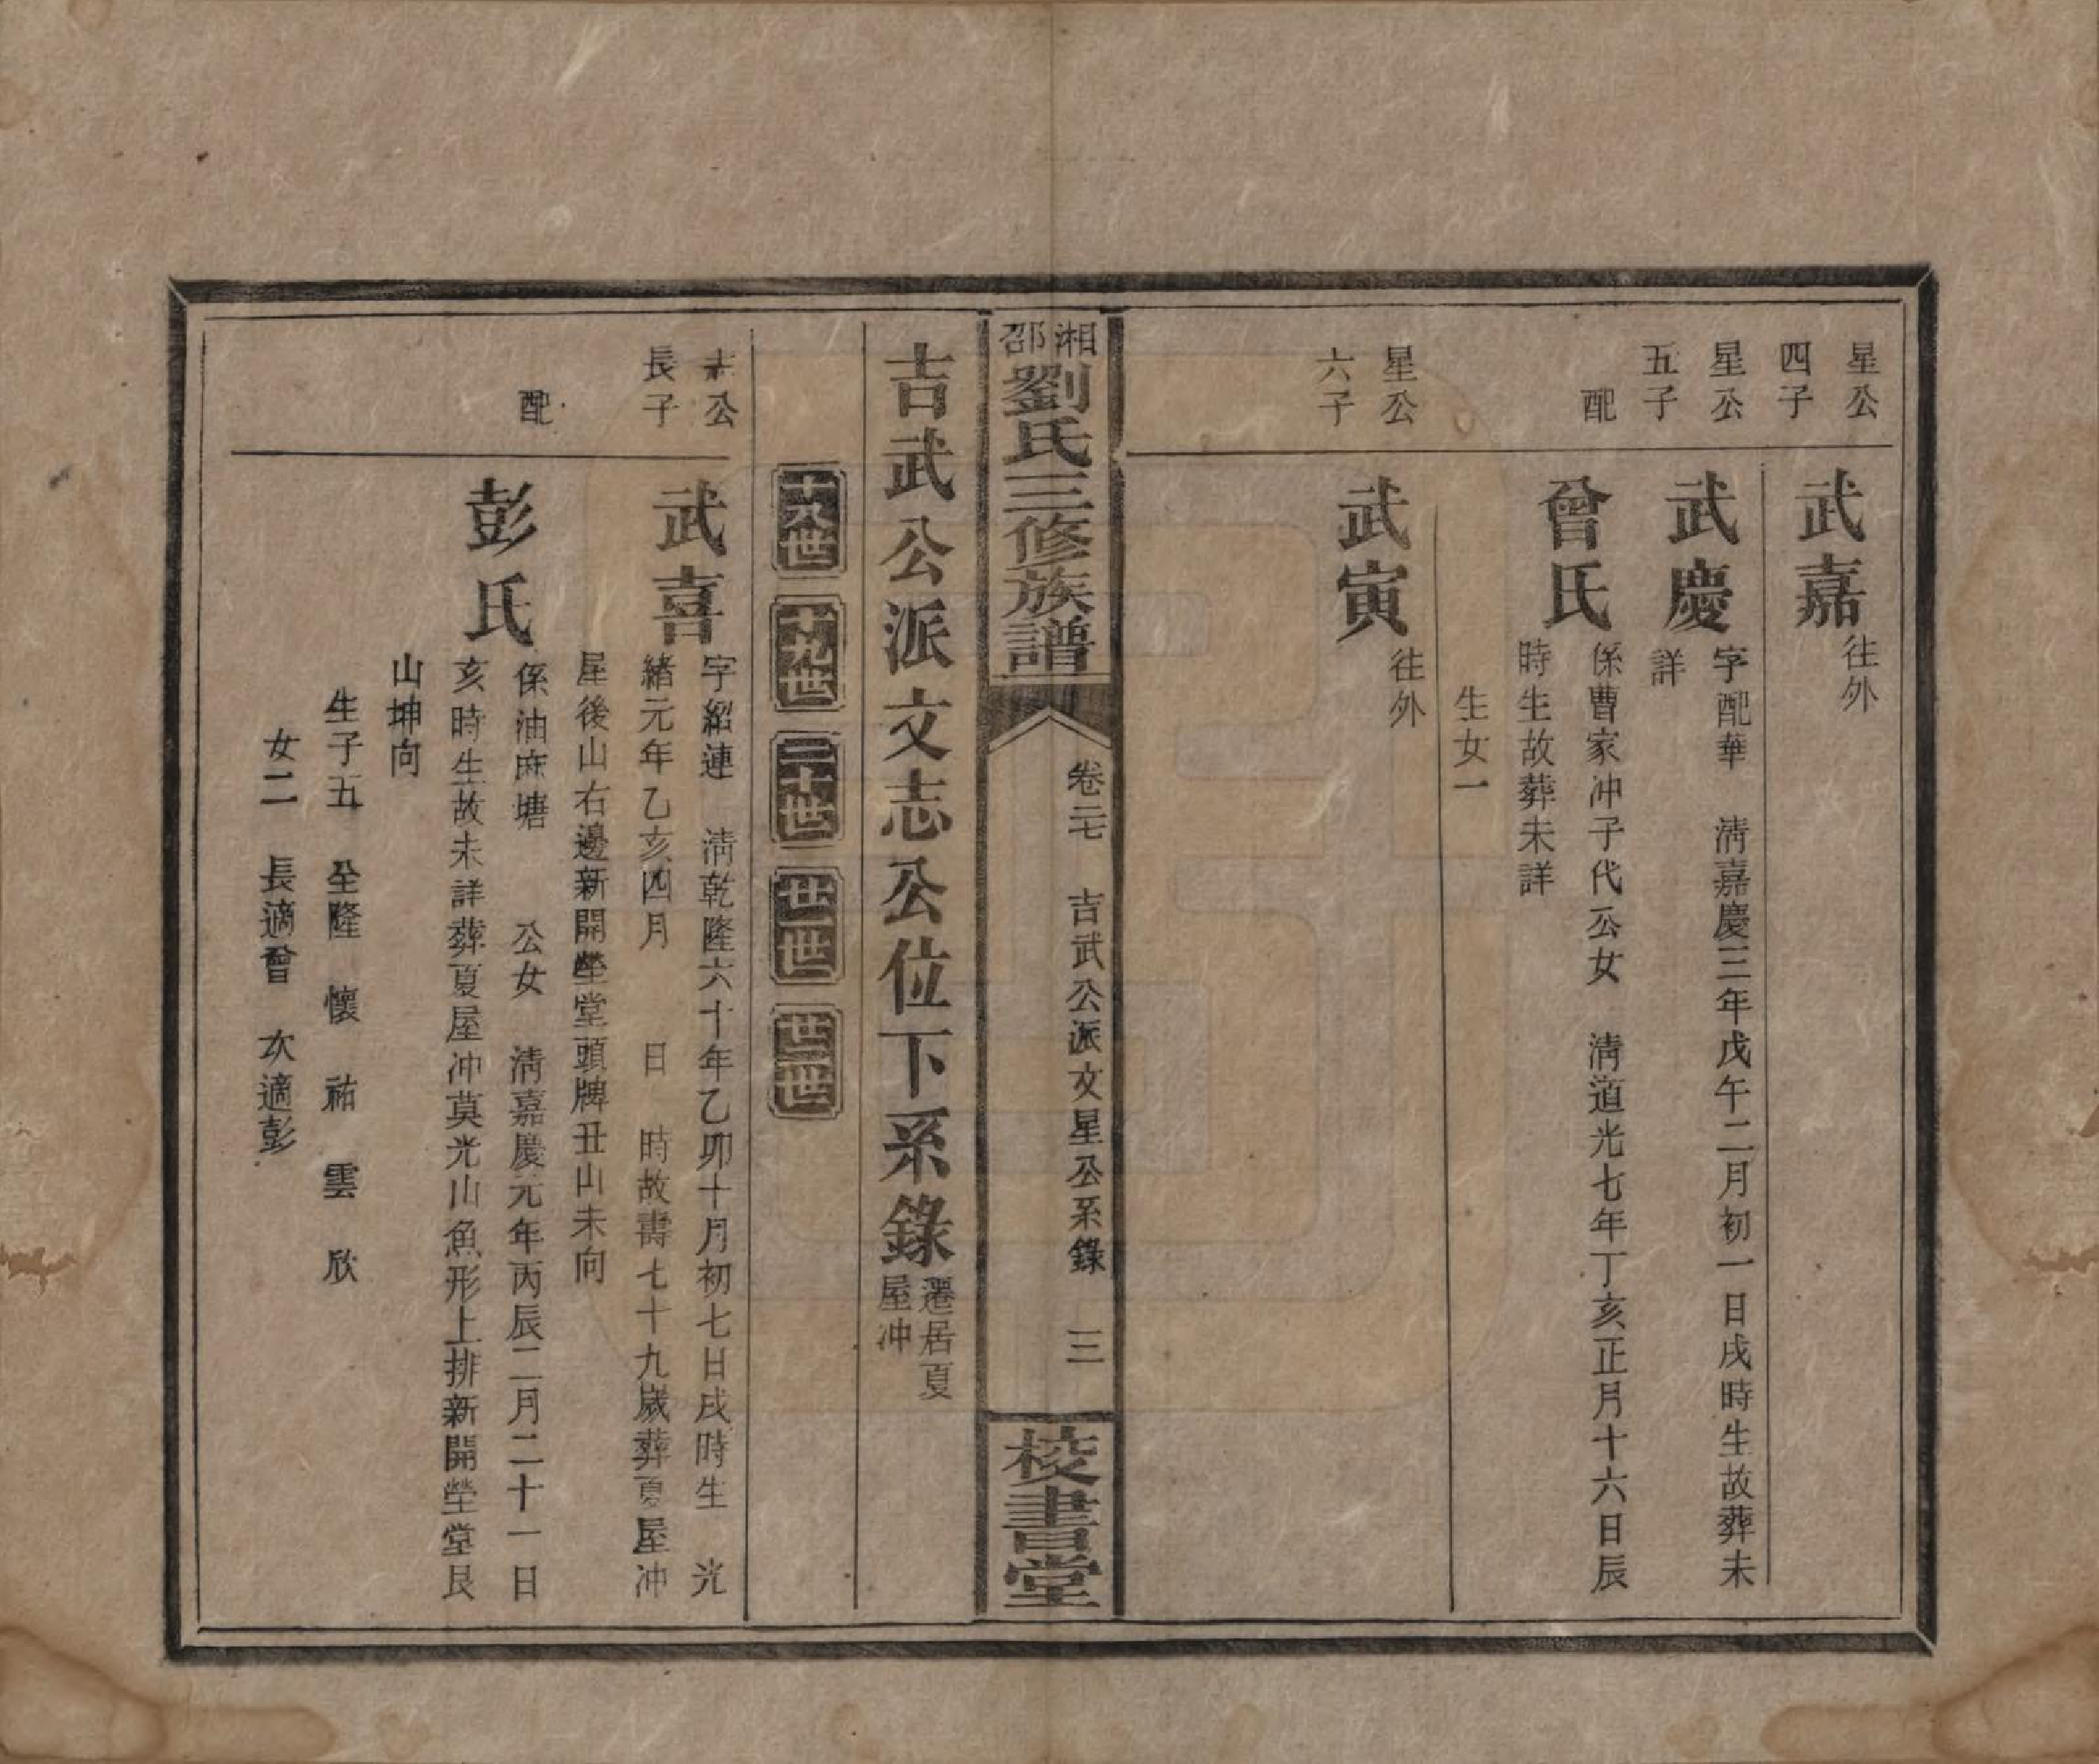 星公
四子
武嘉
往外
星公
五子
武慶
字配華　清嘉慶三年戊午二月初一日戌時生故葬未
詳
配
曾氏
係曹家冲子代公女　清道光七年丁亥正月十六日辰
時生故葬未詳
生女一
星公
六子
武寅
往外
湘邵
劉氏三修族譜
卷二七　吉武公派文星公系錄　三
校書堂
吉武公派文志公位下系錄
遷居夏
屋冲
十八世
十九世
二十世
廿一世
廿二世
志公
長子
武喜
字紹連　清乾隆六十年乙卯十月初七日戌時生　光
緒元年乙亥四月　日　時故壽七十九歲葬夏屋冲
屋後山右邊新開塋堂頭牌丑山未向
配
彭氏
係油麻塘　公女　清嘉慶元年丙辰二月二十一日
亥時生故未詳葬夏屋冲莫光山魚形上排新開塋堂艮
山坤向
生子五　全隆　懷　祐　雲　欣
女二　長適曾　次適彭